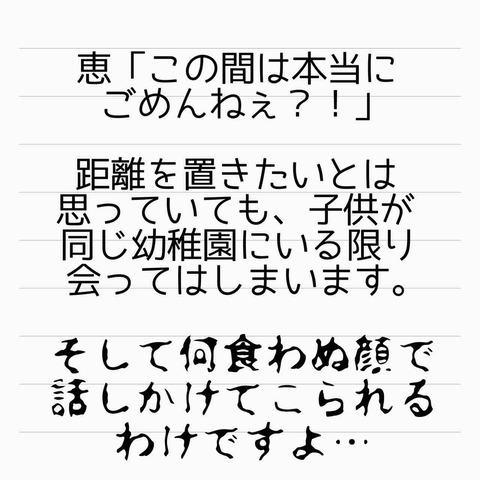 恵「この間は本当に
ごめんねぇ？！」
距離を置きたいとは
思っていても、子供が
同じ幼稚園にいる限り
会ってはしまいます。
そして何食わぬ顔で
話しかけてこられる
わけですよ…